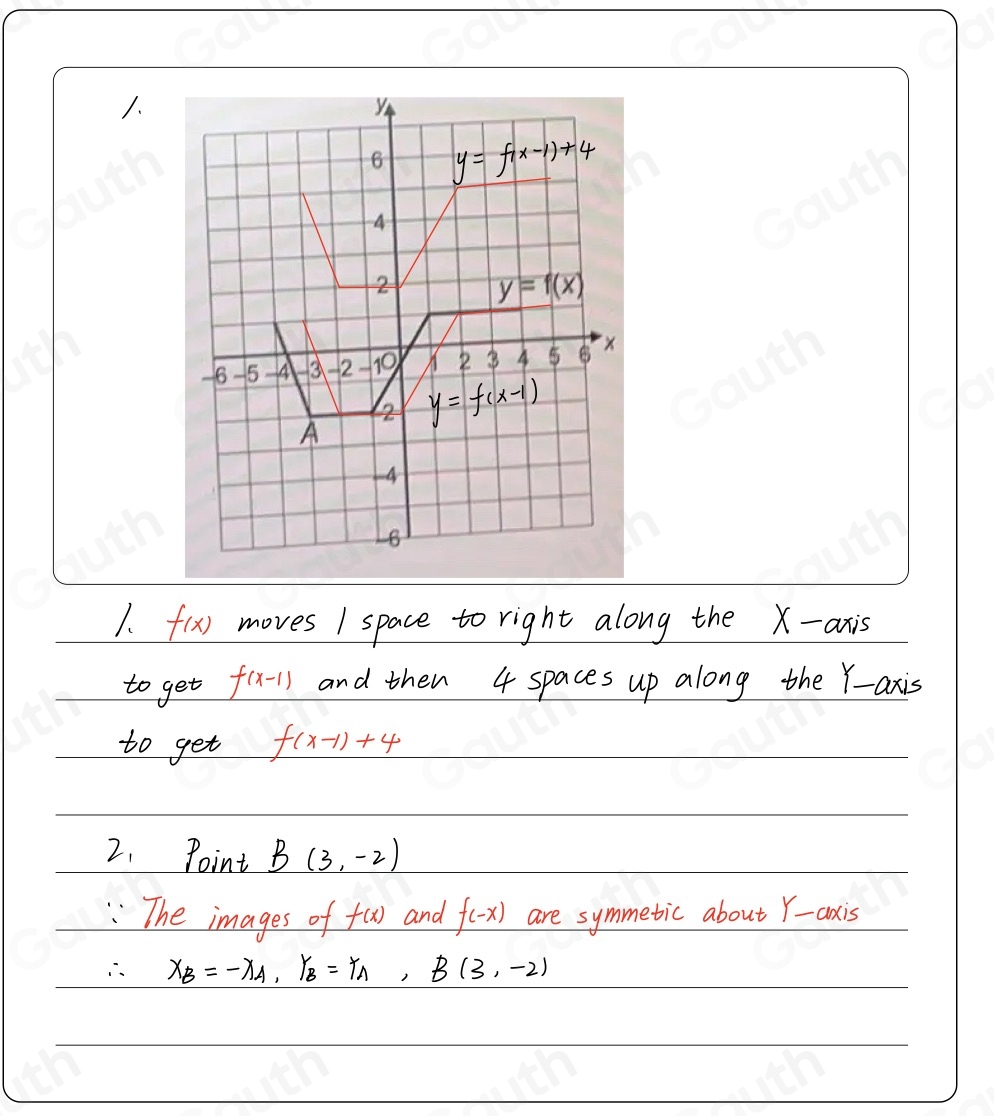 1.
y
6
y = f(x-1)+4
4
2
y = f(x)
x
-6 -5 -4 -3 -2 -1 0 1 2 3 4 5 6
y = f(x-1)
-2
A
-4
-6
1. f(x) moves 1 space to right along the X-axis
to get f(x-1) and then 4 spaces up along the Y-axis
to get f(x-1)+4
2. Point B (3, -2)
∵ The images of f(x) and f(-x) are symmetic about Y-axis
∴ XB = -XA, YB = YA , B (3, -2)
Gauth